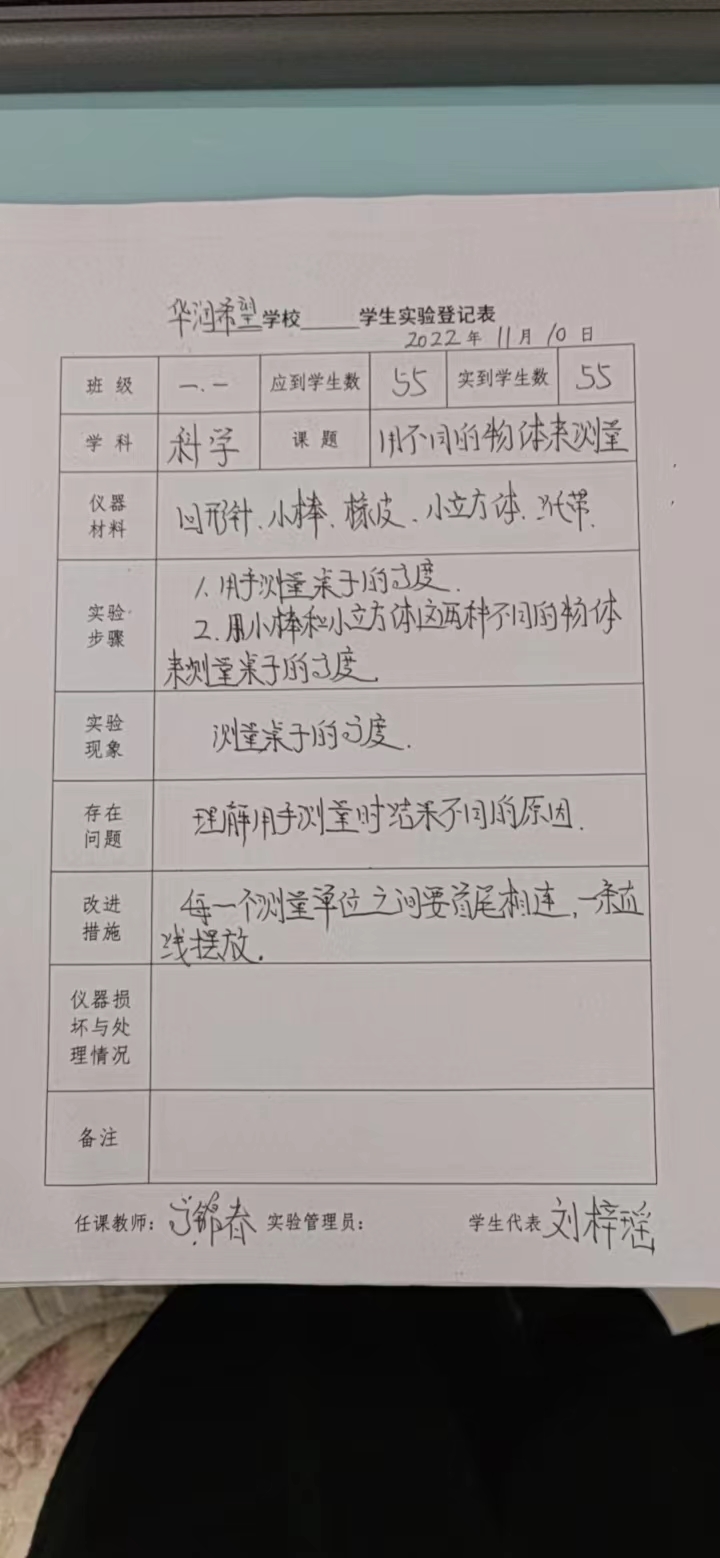 华润希望学校_____学生实验登记表
2022年 11月 10日
班级 一.一 应到学生数 55 实到学生数 55
学科 科学 课题 用不同的物体来测量
仪器
材料
回形针、小棒、橡皮、小立方体、纸带.
实验
步骤
1. 用手测量桌子的高度.
2. 用小棒和小立方体这两种不同的物体
来测量桌子的高度.
实验
现象
测量桌子的高度.
存在
问题
理解用手测量时结果不同的原因.
改进
措施
每一个测量单位之间要首尾相连,一条直
线摆放.
仪器损
坏与处
理情况
备注
任课教师: 春 实验管理员: 学生代表 刘梓瑶